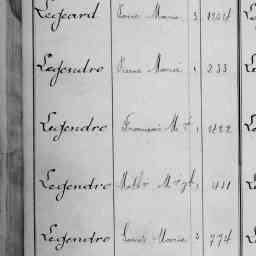 Legeard Marie 3 1204
Legendre Pierre Marie 1 233
Legendre François M 1 1222
Legendre Math 411
Legendre Louis Marie 2 774